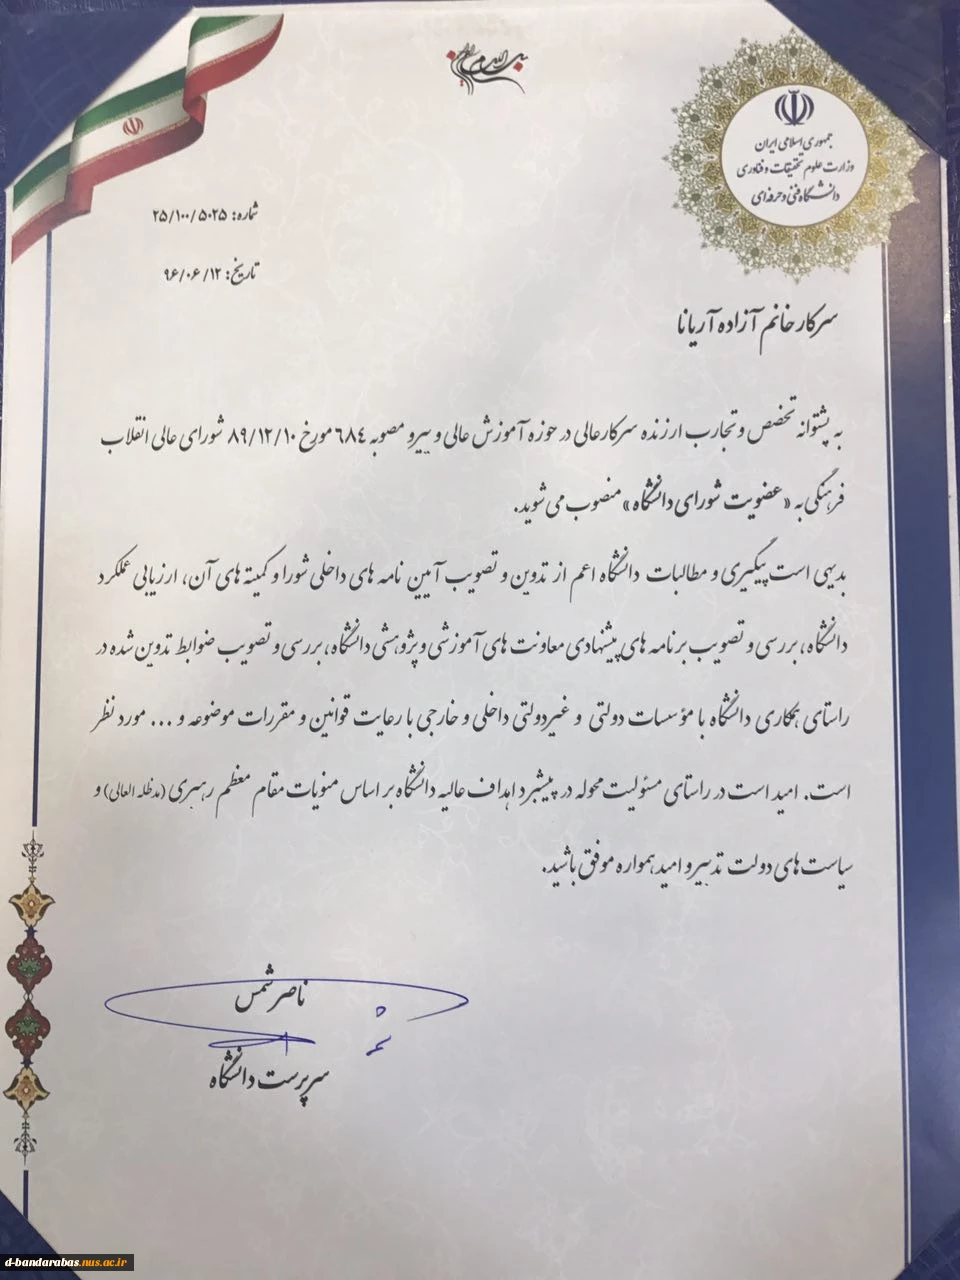 جمهوری اسلامی ایران
وزارت علوم تحقیقات و فناوری
دانشگاه فنی و حرفه‌ای
شماره: ۲۵/۱۰۰/۵۰۲۵
تاریخ: ۹۶/۰۶/۱۲
سرکار خانم آزاده آریانا
به پشتوانه تخصص و تجارب ارزنده سرکارعالی در حوزه آموزش عالی و پیرو مصوبه ۶۸۴ مورخ ۸۹/۱۲/۱۰ شورای عالی انقلاب
فرهنگی به «عضویت شورای دانشگاه» منصوب می شوید.
بدیهی است پیگیری و مطالبات دانشگاه اعم از تدوین و تصویب آیین نامه های داخلی شورا و کمیته های آن، ارزیابی عملکرد
دانشگاه، بررسی و تصویب برنامه های پیشنهادی معاونت های آموزشی و پژوهشی دانشگاه، بررسی و تصویب ضوابط تدوین شده در
راستای همکاری دانشگاه با مؤسسات دولتی و غیردولتی داخلی و خارجی با رعایت قوانین و مقررات موضوعه و ... مورد نظر
است. امید است در راستای مسئولیت محوله در پیشبرد اهداف عالیه دانشگاه بر اساس منویات مقام معظم رهبری (مدظله العالی) و
سیاست های دولت تدبیر و امید همواره موفق باشید.
ناصر شمس
سرپرست دانشگاه
d-bandarabas.nus.ac.ir